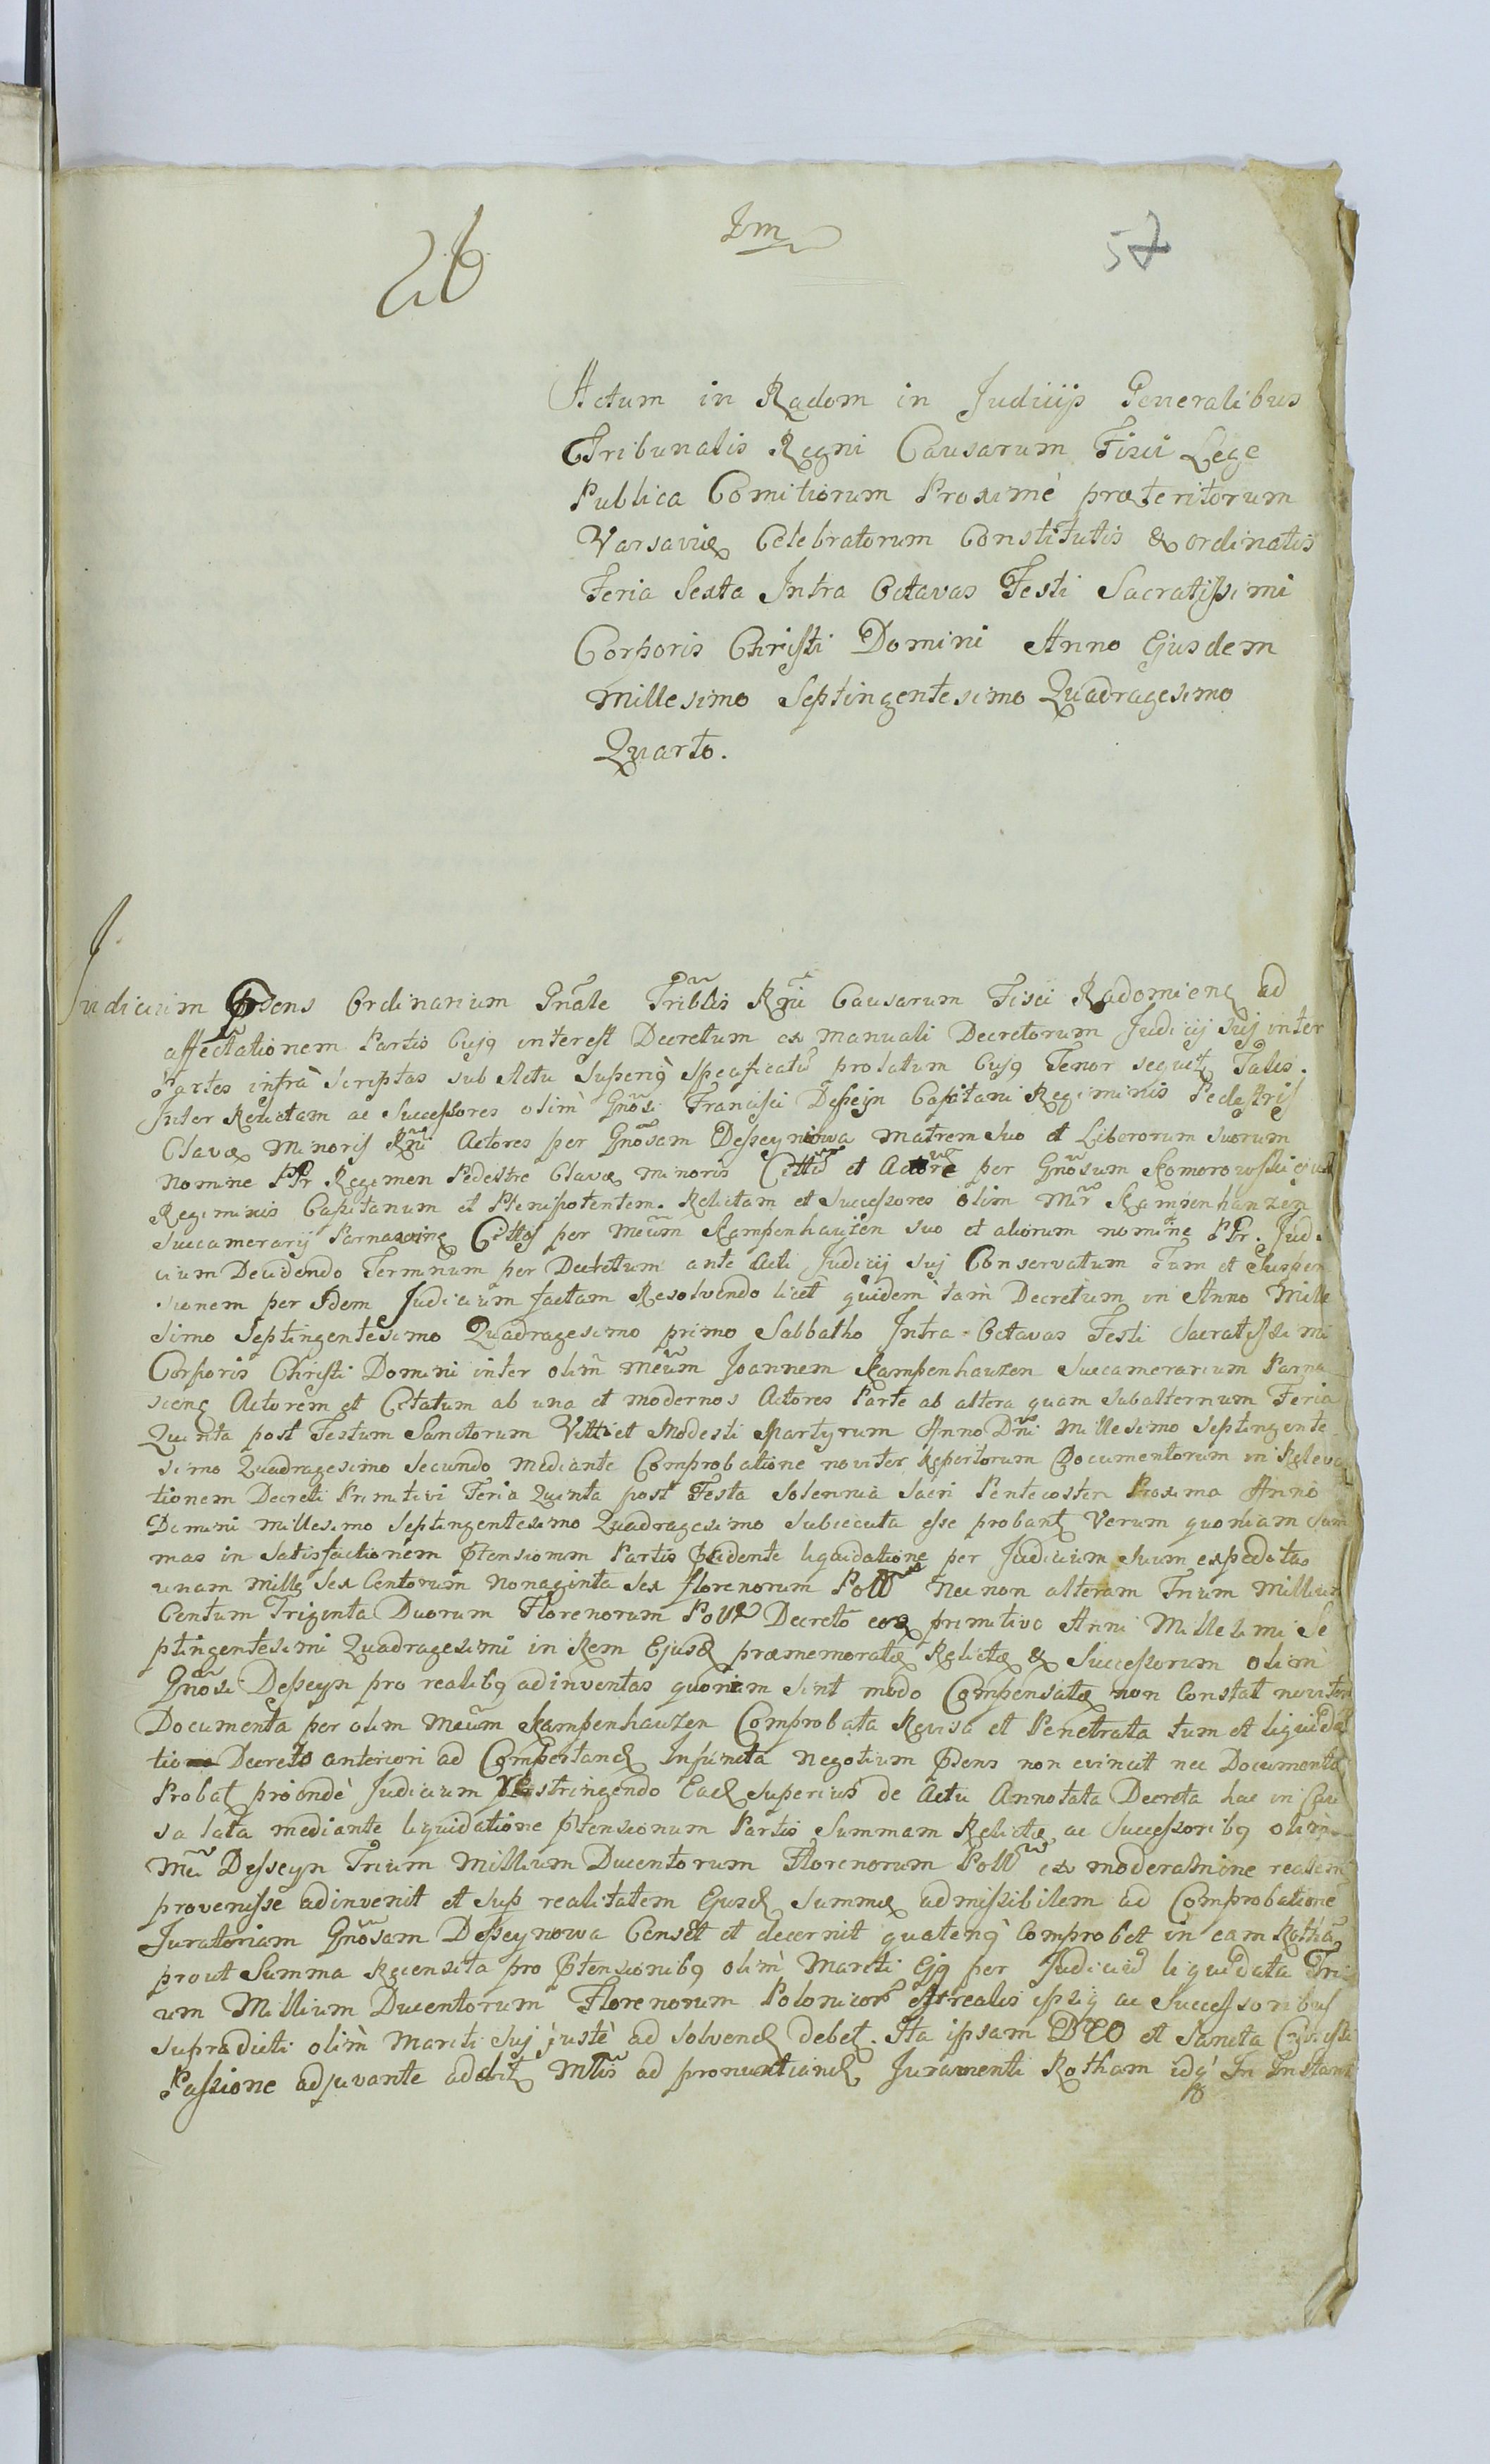 26
Im
57
Actum in Radom in Judicijs Generalibus
Tribunalis Regni Causarum Fisci Lege
Publica Comitiorum Proximè præteritorum
Varsaviæ Celebratorum Constitutis & ordinatis
Feria Sexta Intra Octavas Festi Sacratissimi
Corporis Christi Domini Anno Ejusdem
Millesimo Septingentesimo Quadragesimo
Quarto.
Judicium Pñsens Ordinarium Gñale Triblis Rñi Causarum Fisci Radomienę ad
affectationem Partis Cujq interest Decretum ex manuali Decretorum Judicij Suj inter
Partes infrà scriptas sub Actu Superiq specificatũ prolatum Cujq Tenor sequit Talis.
Inter Relictam ac Successores olim Gñosi Francisci Desseyn Capitani Regiminis Pedestris
Clavæ Minoris Rñi Actores per Gñosam Desseynowa matrem suo et Liberorum suorum
Nomine PPr Regimen Pedestre Clavæ minoris Citt et Actore per Gñosum Komorowski ejusd
Regiminis Capitanum et Plenipotentem. Relictam et Successores olim Mr Kampenhanzen
Succamerarij Parnavienę Cittos per Mcum Kampenhauzen suo et aliorum nomine PPr. Judi
cium Decidendo Terminum per Decretum ante Acti Judicij suj Conservatum Tum et Suspen
sionem per Idem Judicium factam Resolvendo licet quidem iam Decretum in Anno Mille
simo Septingentesimo Quadragesimo primo Sabbatho Intra Octavas Festi Sacratissimi
Corporis Christi Domini inter olim Mcum Joannem Kampenhauzen Succamerarium Parna
vienę Actorem et Citatum ab una et modernos Actores Parte ab altera quam subalternum Feria
Quinta post Festum Sanctorum Vitti et Modesti Martyrum Anno Dñi Millesimo Septingente
simo Quadragesimo Secundo mediante Comprobatione noviter Repertorum Documentorum in Releva
tionem Decreti Primitivi Feria Quinta post Festa Solennia Sacri Pentecostes Proxima Anno
Domini Millesimo Septingentesimo Quadragesimo Subsecuta esse probant Verum quoniam Sum
mas in Satisfactionem Pñtensionum Partis Pñcidente liquidatione per Judicium Suum expeditas
unam Mille Sex Centorum Nonaginta Sex florenorum Poll Nec non alteram Trium Millium
Centum Triginta Duorum Florenorum Poll Decreto eoq primitivo Anni Millesimi Se
ptingentesimi Quadragesimi in Rem Ejusd præmemoratæ Relictæ & Successorum olim
Gñosi Desseyn pro realibq adinventas quoniam sint modo Compensatæ non Constat noviter
Documenta per olim Mcum Kampenhauzen Comprobata Revisa et Penetrata tum et liquida
tio Decreto anteriori ad Comportand Injuncta Negotium Pñsens non evincit nec Documenta
Probat proindè Judicium restringendo Ead Superius de Actu Annotata Decreta hac in Cau
sa lata mediante liquidatione Pñtensionum Partis Summam Relictæ ac Successoribq olim
Mci Desseyn Trium Millium Ducentorum Florenorum Poll ex moderamine realem
provenisse adinvenit et sup realitatem Ejusd Summæ admissibilem ad Comprobatione
Juratoriam Gñosam Desseynowa Censet et decernit quatenq Comprobet in eam Rotha
prout Summa Recensita pro Pñtensionibq olim Mariti Ejq per Judiciũ liquidata Tri
um Millium Ducentorum Florenorum Polonicor est realis ipsiq ac Successoribus
supradicti olim Mariti Suj justè ad solvend debet. Ita ipsam DEO et Sancta Christi
Passione adjuvante addit Mtis ad pronuntiand Juramenti Rotham idq In Instanti